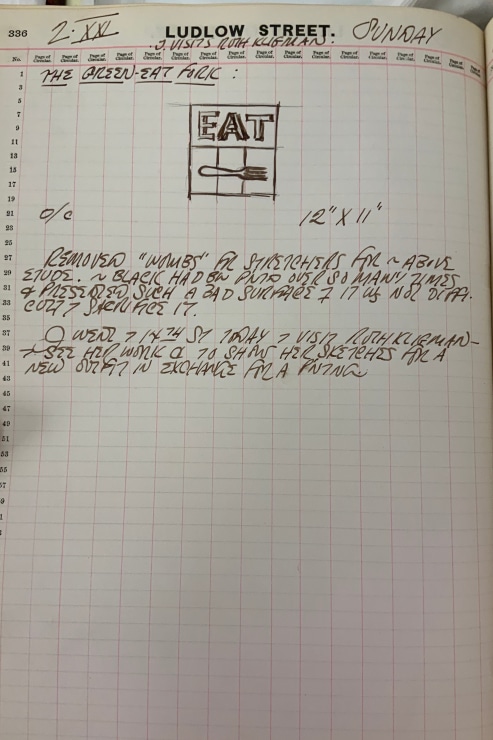 336 2·XXI LUDLOW STREET. SUNDAY
J. VISITS RUTH KLIGMAN.
No. Page of Circular. Page of Circular. Page of Circular. Page of Circular. Page of Circular. Page of Circular. Page of Circular. Page of Circular. Page of Circular. Page of Circular. Page of Circular. Page of Circular.
1 THE GREEN-EAT FORK :
3
5
7
EAT
9
11
13
15
17
19
21 O/C 12" X 11"
23
25
27 REMOVED "WOMBS" FR STRETCHERS FOR ~ ABOVE
29 ETUDE. ~ BLACK HAD BN PNTD OVER SO MANY TIMES
31 & PRESENTED SUCH A BAD SURFACE IT WS NOT
33 SACRIFICE IT.
35
37 J WENT > 14TH ST TODAY > VISIT RUTH KLIGMAN—
39 SEE HER WORK & TO SHOW HER SKETCHES FOR A
41 NEW OUTFIT IN EXCHANGE FOR A PNTNG
43
45
47
49
51
53
55
57